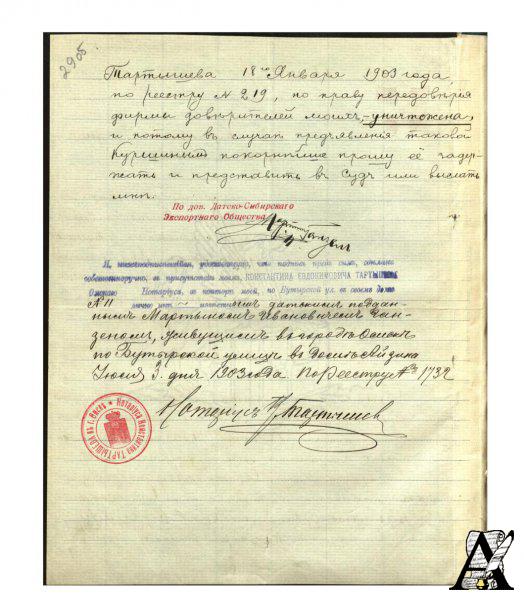 290б
Тартышева 18го Января 1903 года,
по реестру № 219, по праву передовѣрія
фирмы довѣрителей моихъ,-уничтожена,
и потому въ случаѣ предъявленія таковой
Куршинымъ покорнѣйше прошу её задер-
жать и представить въ Судъ или выслать
мнѣ.
По дов. Датско-Сибирскаго
Экспортнаго Общества
Я, нижеподписавшійся, удостовѣряю, что подпись эта сдѣлана
собственноручно, въ присутствіи моемъ, КОНСТАНТИНА ЕВДОКИМОВИЧА ТАРТЫШЕВА
Омскаго Нотаріуса, въ конторѣ моей, по Бутырской ул. въ своемъ домѣ
№ 11 лично мнѣ извѣстнымъ датскимъ поддан-
нымъ Мартыномъ Ивановичемъ Ган-
зеномъ, живущимъ въ городѣ Омскѣ
по Бутырской улицѣ въ домѣ
Іюля 3 дня 1903 года По Реестру № 1732
Нотаріусъ К Тартышевъ
Нотаріусъ Константинъ ТАРТЫШЕВЪ въ г. Омскѣ
А